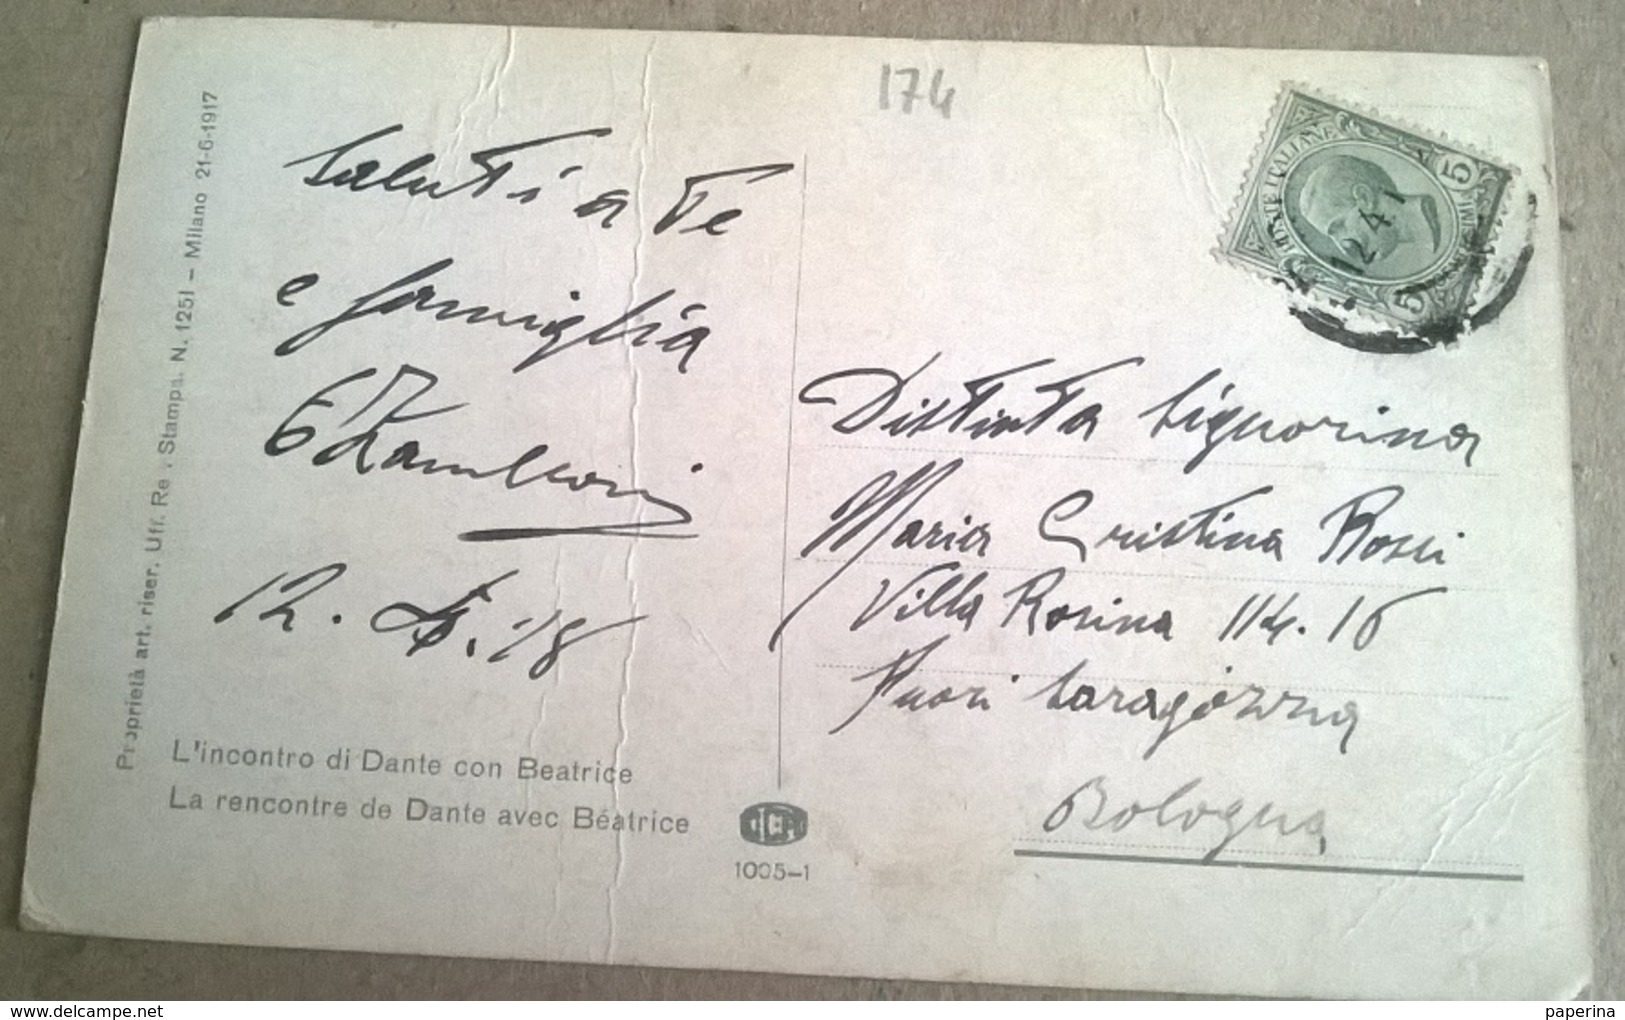 174
POSTE ITALIANE
5
5
12 4 1
Saluti a Te
e famiglia
Zamboni
12. 4. 18
Distinta Signorina
Maria Cristina Rossi
Villa Rosina 114. 16
Fuori Saragozza
Bologna
Proprietà art. riser. Uff. Re. Stampa. N. 1251 – Milano 21-6-1917
L'incontro di Dante con Beatrice
La rencontre de Dante avec Béatrice
1005–1
www.delcampe.net
paperina